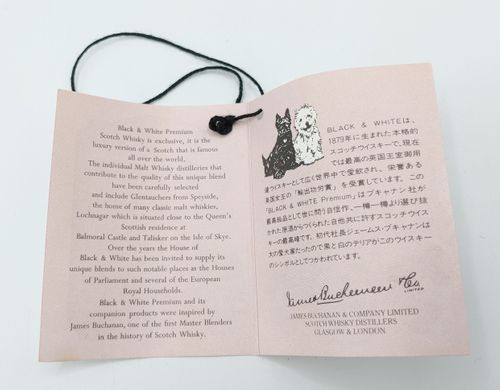 Black & White Premium
Scotch Whisky is exclusive, it is the
luxury version of a Scotch that is famous
all over the world.
The individual Malt Whisky distilleries that
contribute to the quality of this unique blend
have been carefully selected
and include Glentauchers from Speyside,
the home of many classic malt whiskies,
Lochnagar which is situated close to the Queen's
Scottish residence at
Balmoral Castle and Talisker on the Isle of Skye.
Over the years the House of
Black & White has been invited to supply its
unique blends to such notable places as the Houses
of Parliament and several of the European
Royal Households.
Black & White Premium and its
companion products were inspired by
James Buchanan, one of the first Master Blenders
in the history of Scotch Whisky.
BLACK & WHITEは、
1879年に生まれた本格的
スコッチウイスキーで、現在
では最高の英国王室御用
達ウイスキーとして広く世界中で愛飲され、栄誉ある
英国女王の「輸出功労賞」を受賞しています。この
「BLACK & WHITE Premium」はブキャナン社が
最高級品として世に問う自信作。一樽一樽より選び抜
かれた原酒からつくられた自他共に許すスコッチウイス
キーの最高峰です。初代社長ジェームス・ブキャナンは
大の愛犬家だったので黒と白のテリアがこのウイスキー
のシンボルとしてつかわれています。
James Buchanan & Co.
LIMITED
JAMES BUCHANAN & COMPANY LIMITED
SCOTCH WHISKY DISTILLERS
GLASGOW & LONDON.